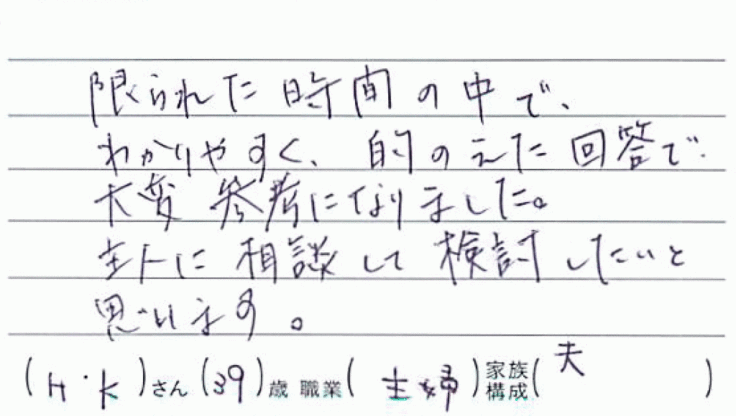 限られた時間の中で、
わかりやすく、的のえた回答で
大変参考になりました。
主人に相談して検討したいと
思います。
(H・K)さん(39)歳 職業(主婦)家族構成(夫)